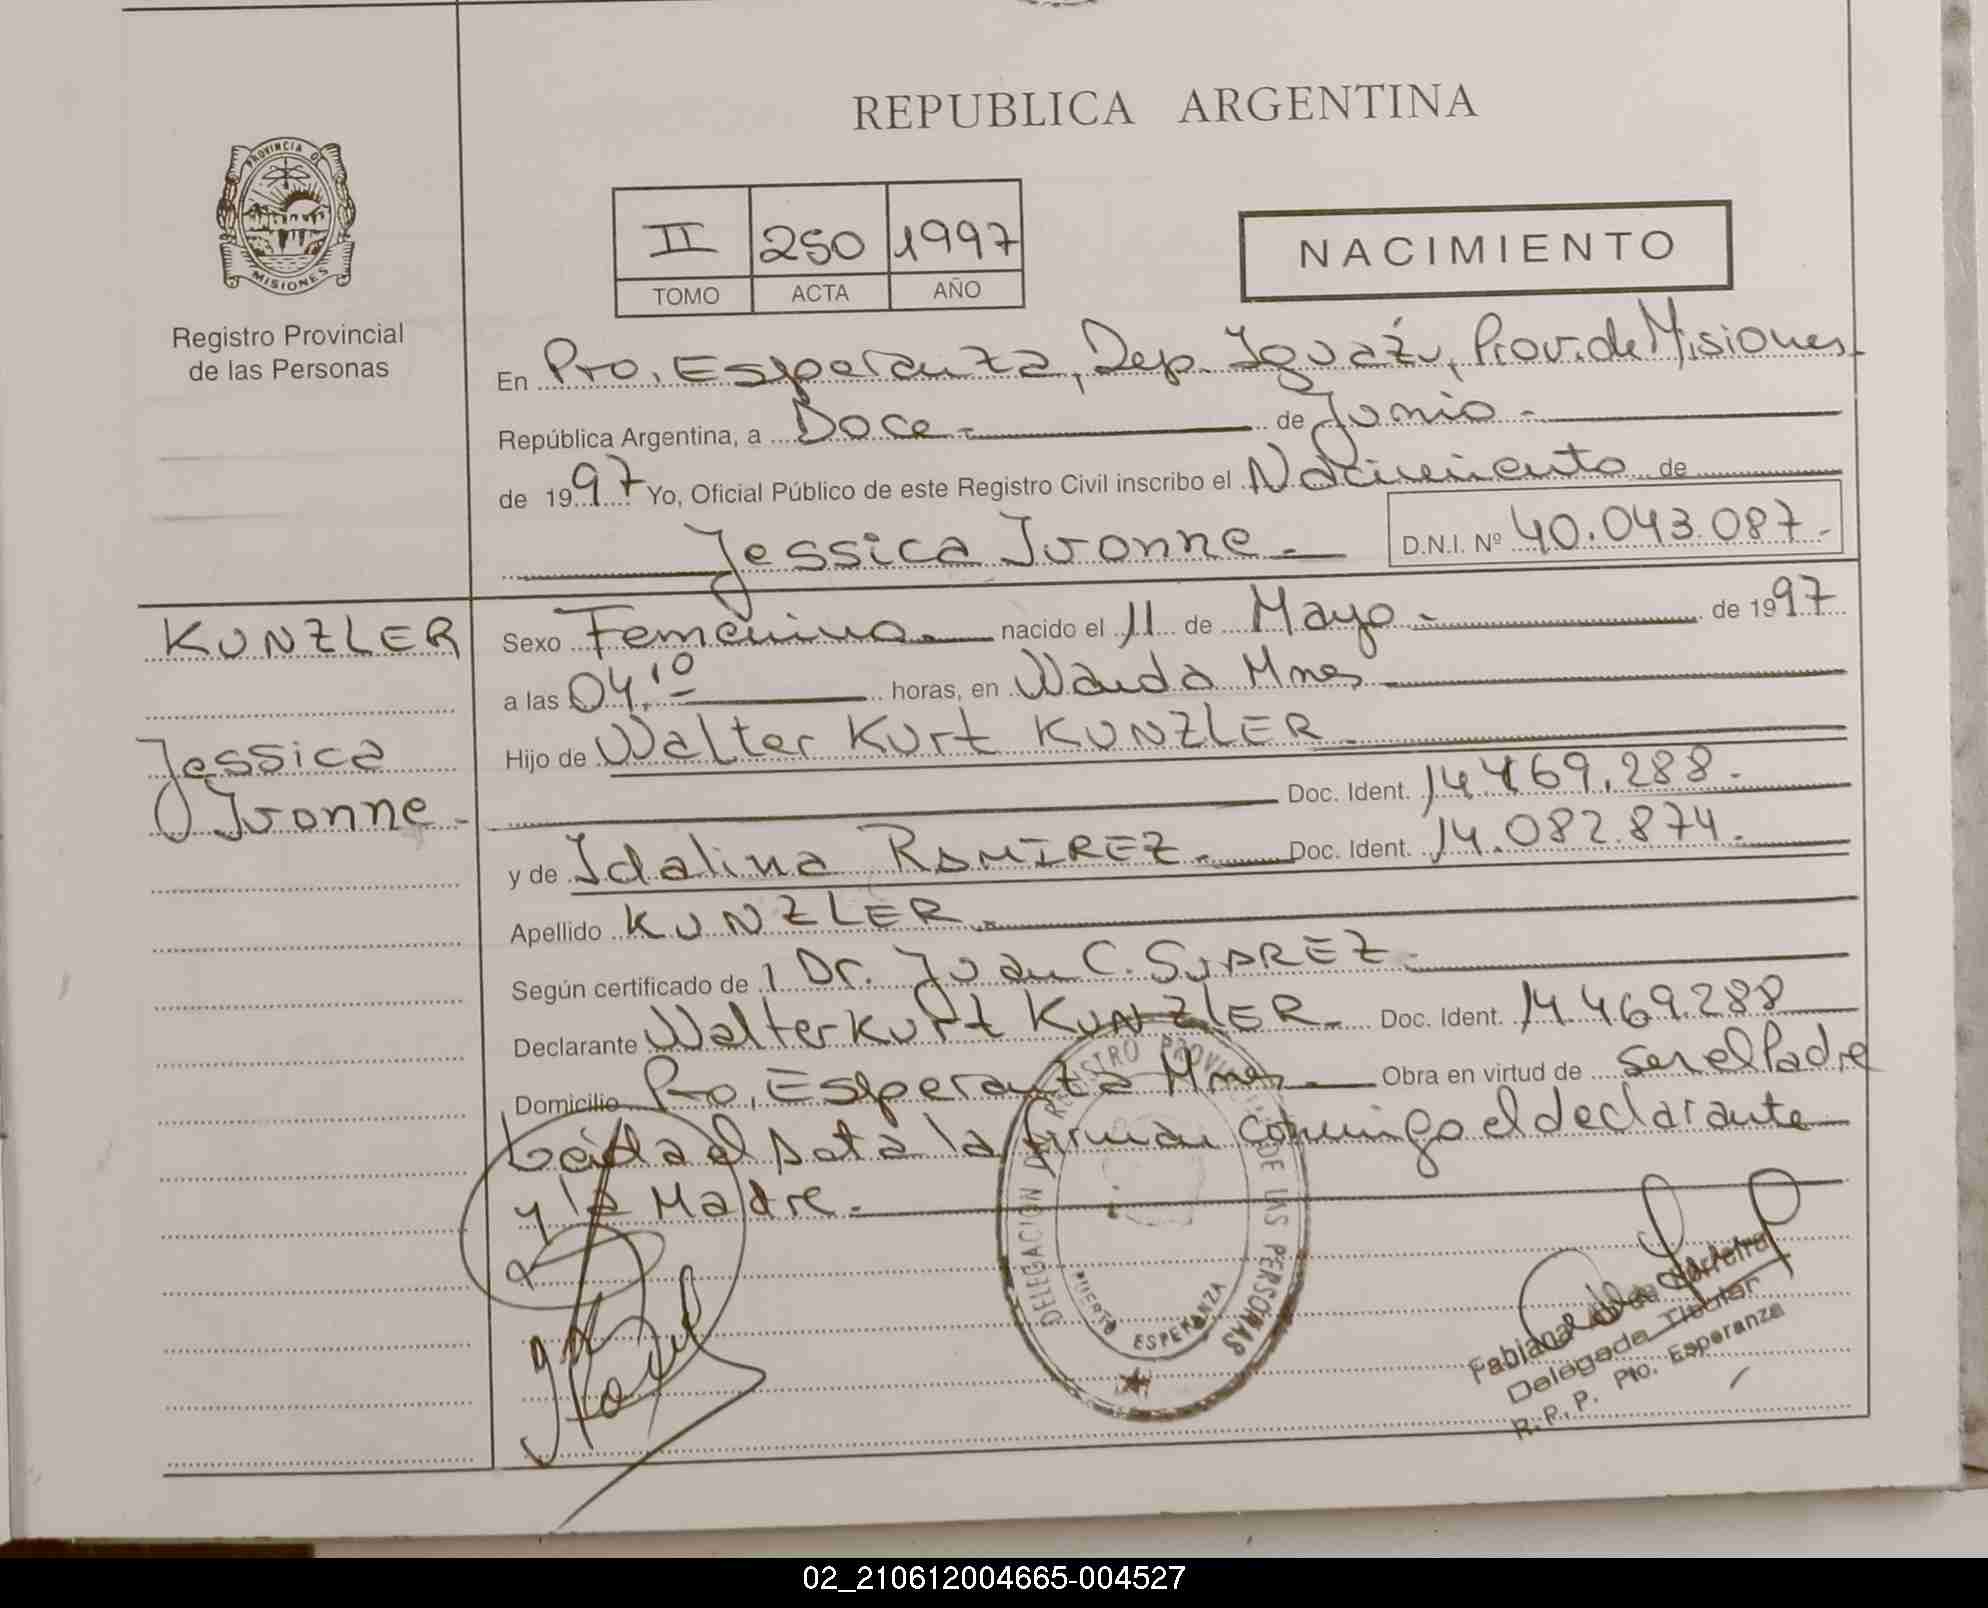 REPUBLICA ARGENTINA
PROVINCIA DE
MISIONES
Registro Provincial
de las Personas
II 250 1997
TOMO ACTA AÑO
NACIMIENTO
En Pto. Esperanza, Dep. Iguazú, Prov. de Misiones
República Argentina, a Doce.- de Junio.-
de 1997 Yo, Oficial Público de este Registro Civil inscribo el Nacimiento de
Jessica Ivonne.- D.N.I. Nº 40.043.087.-
KUNZLER
Jessica
Ivonne.-
Sexo Femenino.- nacido el 11 de Mayo.- de 1997
a las 04.10 horas, en Wanda Mnes.
Hijo de Walter Kurt KUNZLER.
Doc. Ident. 14.469.288.-
y de Idalina RAMIREZ.- Doc. Ident. 14.082.874.-
Apellido KUNZLER.-
Según certificado de Dr. Juan C. SUAREZ.-
Declarante Walter Kurt KUNZLER.- Doc. Ident. 14.469.288
Domicilio Pto. Esperanza Mnes.- Obra en virtud de ser el Padre
Leída el Acta la firman conmigo el declarante
y la Madre.-
DELEGACION REGISTRO PROVINCIAL DE LAS PERSONAS
PUERTO ESPERANZA
Fabiana
Delegada Titular
R.P.P. Pto. Esperanza
02_210612004665-004527